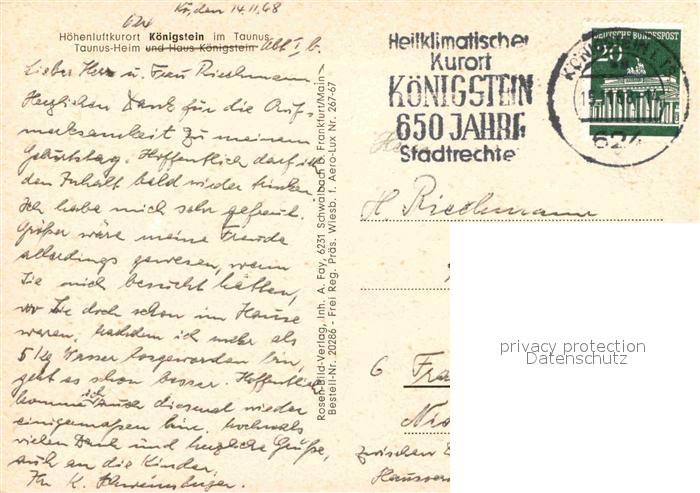 Kö, den 14.11.68
624
Höhenluftkurort Königstein im Taunus
Taunus-Heim und Haus Königstein Abt I b.
Lieber Herr u. Frau Riechmann!
Herzlichen Dank für die Auf-
merksamkeit zu meinem
Geburtstag. Hoffentlich darf ich
den Inhalt bald wieder trinken
Ich habe mich sehr gefreut.
Größer wäre meine Freude
allerdings gewesen, wenn
Sie mich besucht hätten,
wo Sie doch schon im Hause
waren. Nachdem ich mehr als
5 kg Wasser losgeworden bin,
geht es schon besser. Hoffentlich
komme ich auch diesmal wieder
einigermaßen hin. Nochmals
vielen Dank und herzliche Grüße,
auch an die Kinder,
Ihr K.
Rosen-Bild-Verlag, Inh. A. Fay, 6231 Schwalbach b. Frankfurt/Main
Bestell-Nr. 20286 - Frei Reg. Präs. Wiesb. f. Aero-Lux Nr. 267-67
Heilklimatischer
Kurort
KÖNIGSTEIN
650 JAHRE
Stadtrechte
DEUTSCHE BUNDESPOST
20
624
H Riechmann
6 Fra
Nis
zwischen
Hausver
privacy protection
Datenschutz